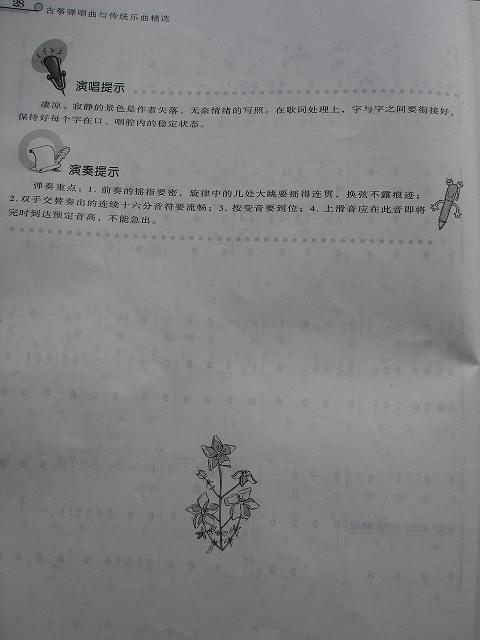 28 古筝弹唱曲与传统乐曲精选
演唱提示
凄凉、寂静的景色是作者失落、无奈情绪的写照。在歌词处理上，字与字之间要衔接好，
保持好每个字在口、咽腔内的稳定状态。
演奏提示
弹奏重点：1. 前奏的摇指要密，旋律中的几处大跳要摇得连贯，换弦不露痕迹；
2. 双手交替奏出的连续十六分音符要流畅；3. 按变音要到位；4. 上滑音应在此音即将
完时到达预定音高，不能急出。